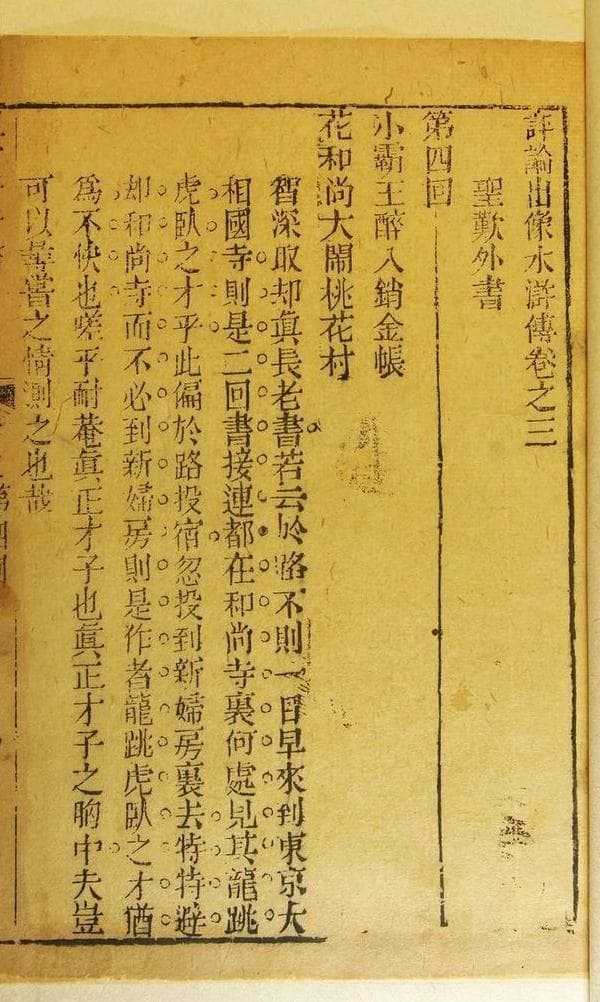 評論出像水滸傳卷之三
聖歎外書
第四回
小霸王醉入銷金帳
花和尚大鬧桃花村
智深取却眞長老書若云於路不則一日早來到東京大
相國寺則是二回書接連都在和尚寺裏何處見其龍跳
虎臥之才乎此偏於路投宿忽投到新婦房裏去特特避
却和尚寺而不必到新婦房則是作者龍跳虎臥之才猶
爲不快也嗟乎耐菴眞正才子也眞正才子之胸中夫豈
可以尋嘗之情測之也哉
第四回